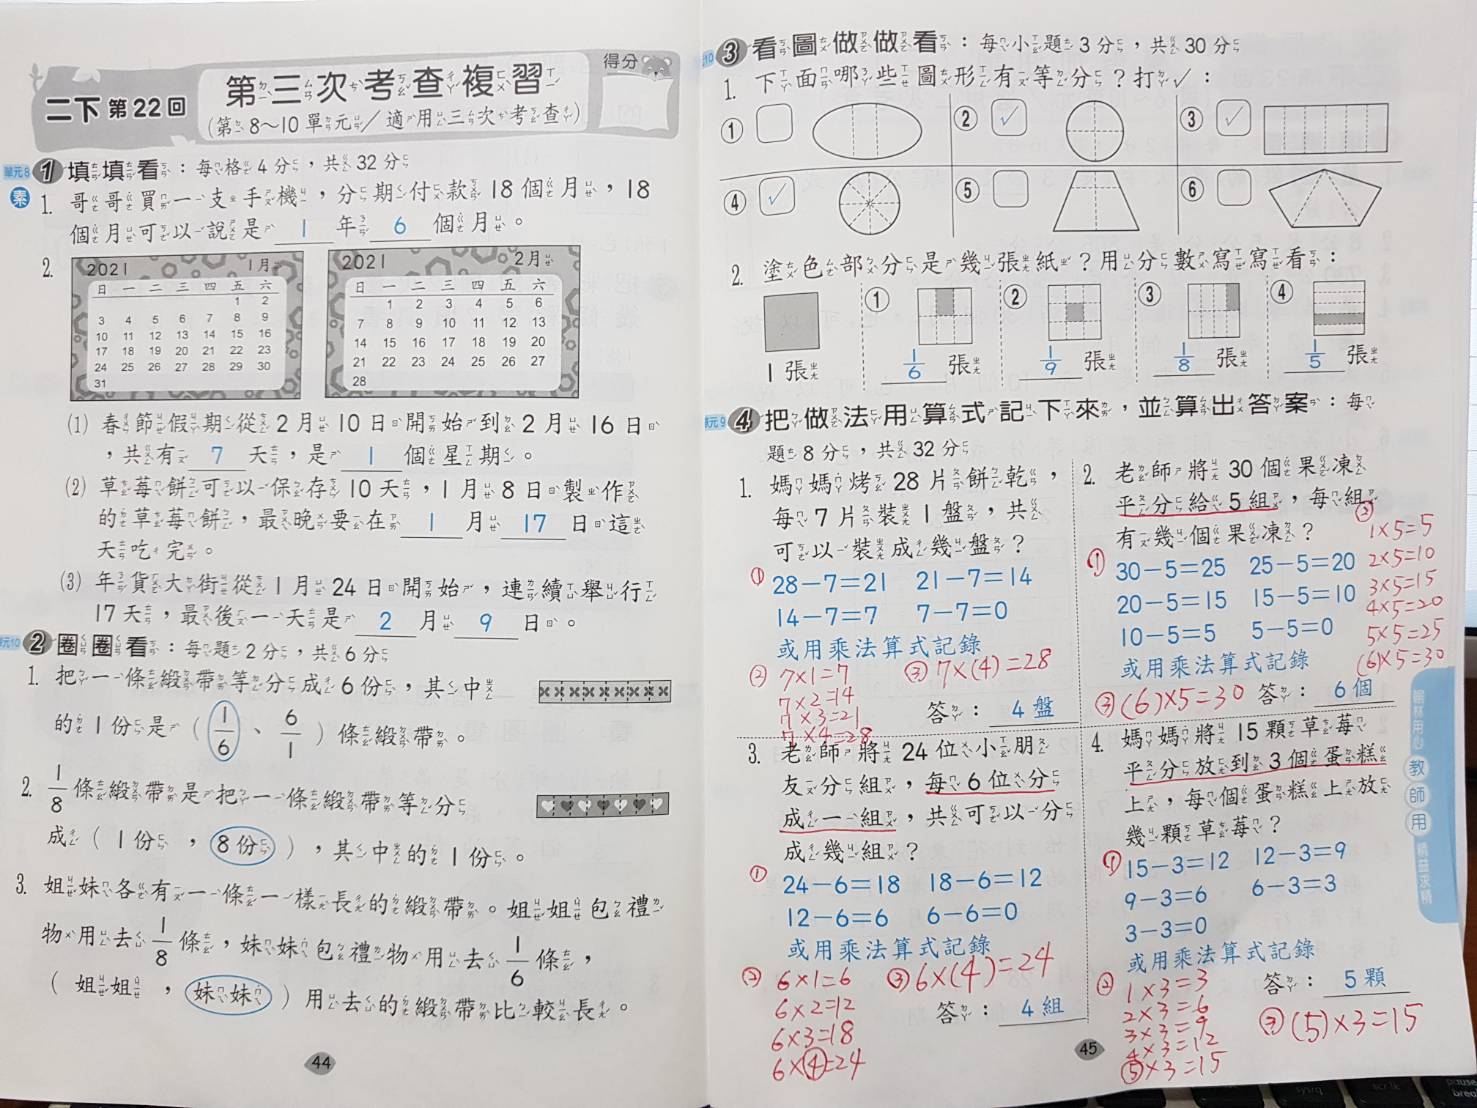 二下 第22回
第三次考查複習
(第8~10單元/適用三次考查)
得分
單元8
1 填填看：每格4分，共32分
素
1. 哥哥買一支手機，分期付款18個月，18
個月可以說是 1 年 6 個月。
2.
2021 1月
日 一 二 三 四 五 六
1 2
3 4 5 6 7 8 9
10 11 12 13 14 15 16
17 18 19 20 21 22 23
24 25 26 27 28 29 30
31
2021 2月
日 一 二 三 四 五 六
1 2 3 4 5 6
7 8 9 10 11 12 13
14 15 16 17 18 19 20
21 22 23 24 25 26 27
28
(1) 春節假期從2月10日開始到2月16日
，共有 7 天，是 1 個星期。
(2) 草莓餅可以保存10天，1月8日製作
的草莓餅，最晚要在 1 月 17 日這
天吃完。
(3) 年貨大街從1月24日開始，連續舉行
17天，最後一天是 2 月 9 日。
單元10
2 圈圈看：每題2分，共6分
1. 把一條緞帶等分成6份，其中
的1份是（1/6、6/1）條緞帶。
2. 1/8條緞帶是把一條緞帶等分
成（1份，8份），其中的1份。
3. 姐妹各有一條一樣長的緞帶。姐姐包禮
物用去1/8條，妹妹包禮物用去1/6條，
（姐姐，妹妹）用去的緞帶比較長。
44
3 看圖做做看：每小題3分，共30分
1. 下面哪些圖形有等分？打✓：
①
② ✓
③ ✓
④ ✓
⑤
⑥
2. 塗色部分是幾張紙？用分數寫寫看：
1張
① 1/6 張
② 1/9 張
③ 1/8 張
④ 1/5 張
單元9
4 把做法用算式記下來，並算出答案：每
題8分，共32分
1. 媽媽烤28片餅乾，
每7片裝1盤，共
可以裝成幾盤？
① 28－7＝21 21－7＝14
14－7＝7 7－7＝0
或用乘法算式記錄
② 7×1=7
7×2=14
7×3=21
7×4=28
③ 7×(4)=28
答： 4盤
2. 老師將30個果凍
平分給5組，每組
有幾個果凍？
① 30－5＝25 25－5＝20
20－5＝15 15－5＝10
10－5＝5 5－5＝0
或用乘法算式記錄
② 1×5=5
2×5=10
3×5=15
4×5=20
5×5=25
(6)×5=30
③ (6)×5=30
答： 6個
3. 老師將24位小朋
友分組，每6位分
成一組，共可以分
成幾組？
① 24－6＝18 18－6＝12
12－6＝6 6－6＝0
或用乘法算式記錄
② 6×1=6
6×2=12
6×3=18
6×④=24
③ 6×(4)=24
答： 4組
4. 媽媽將15顆草莓
平分放到3個蛋糕
上，每個蛋糕上放
幾顆草莓？
① 15－3＝12 12－3＝9
9－3＝6 6－3＝3
3－3＝0
或用乘法算式記錄
② 1×3=3
2×3=6
3×3=9
4×3=12
⑤×3=15
③ (5)×3=15
答： 5顆
翰林用心 教師用 精益求精
45